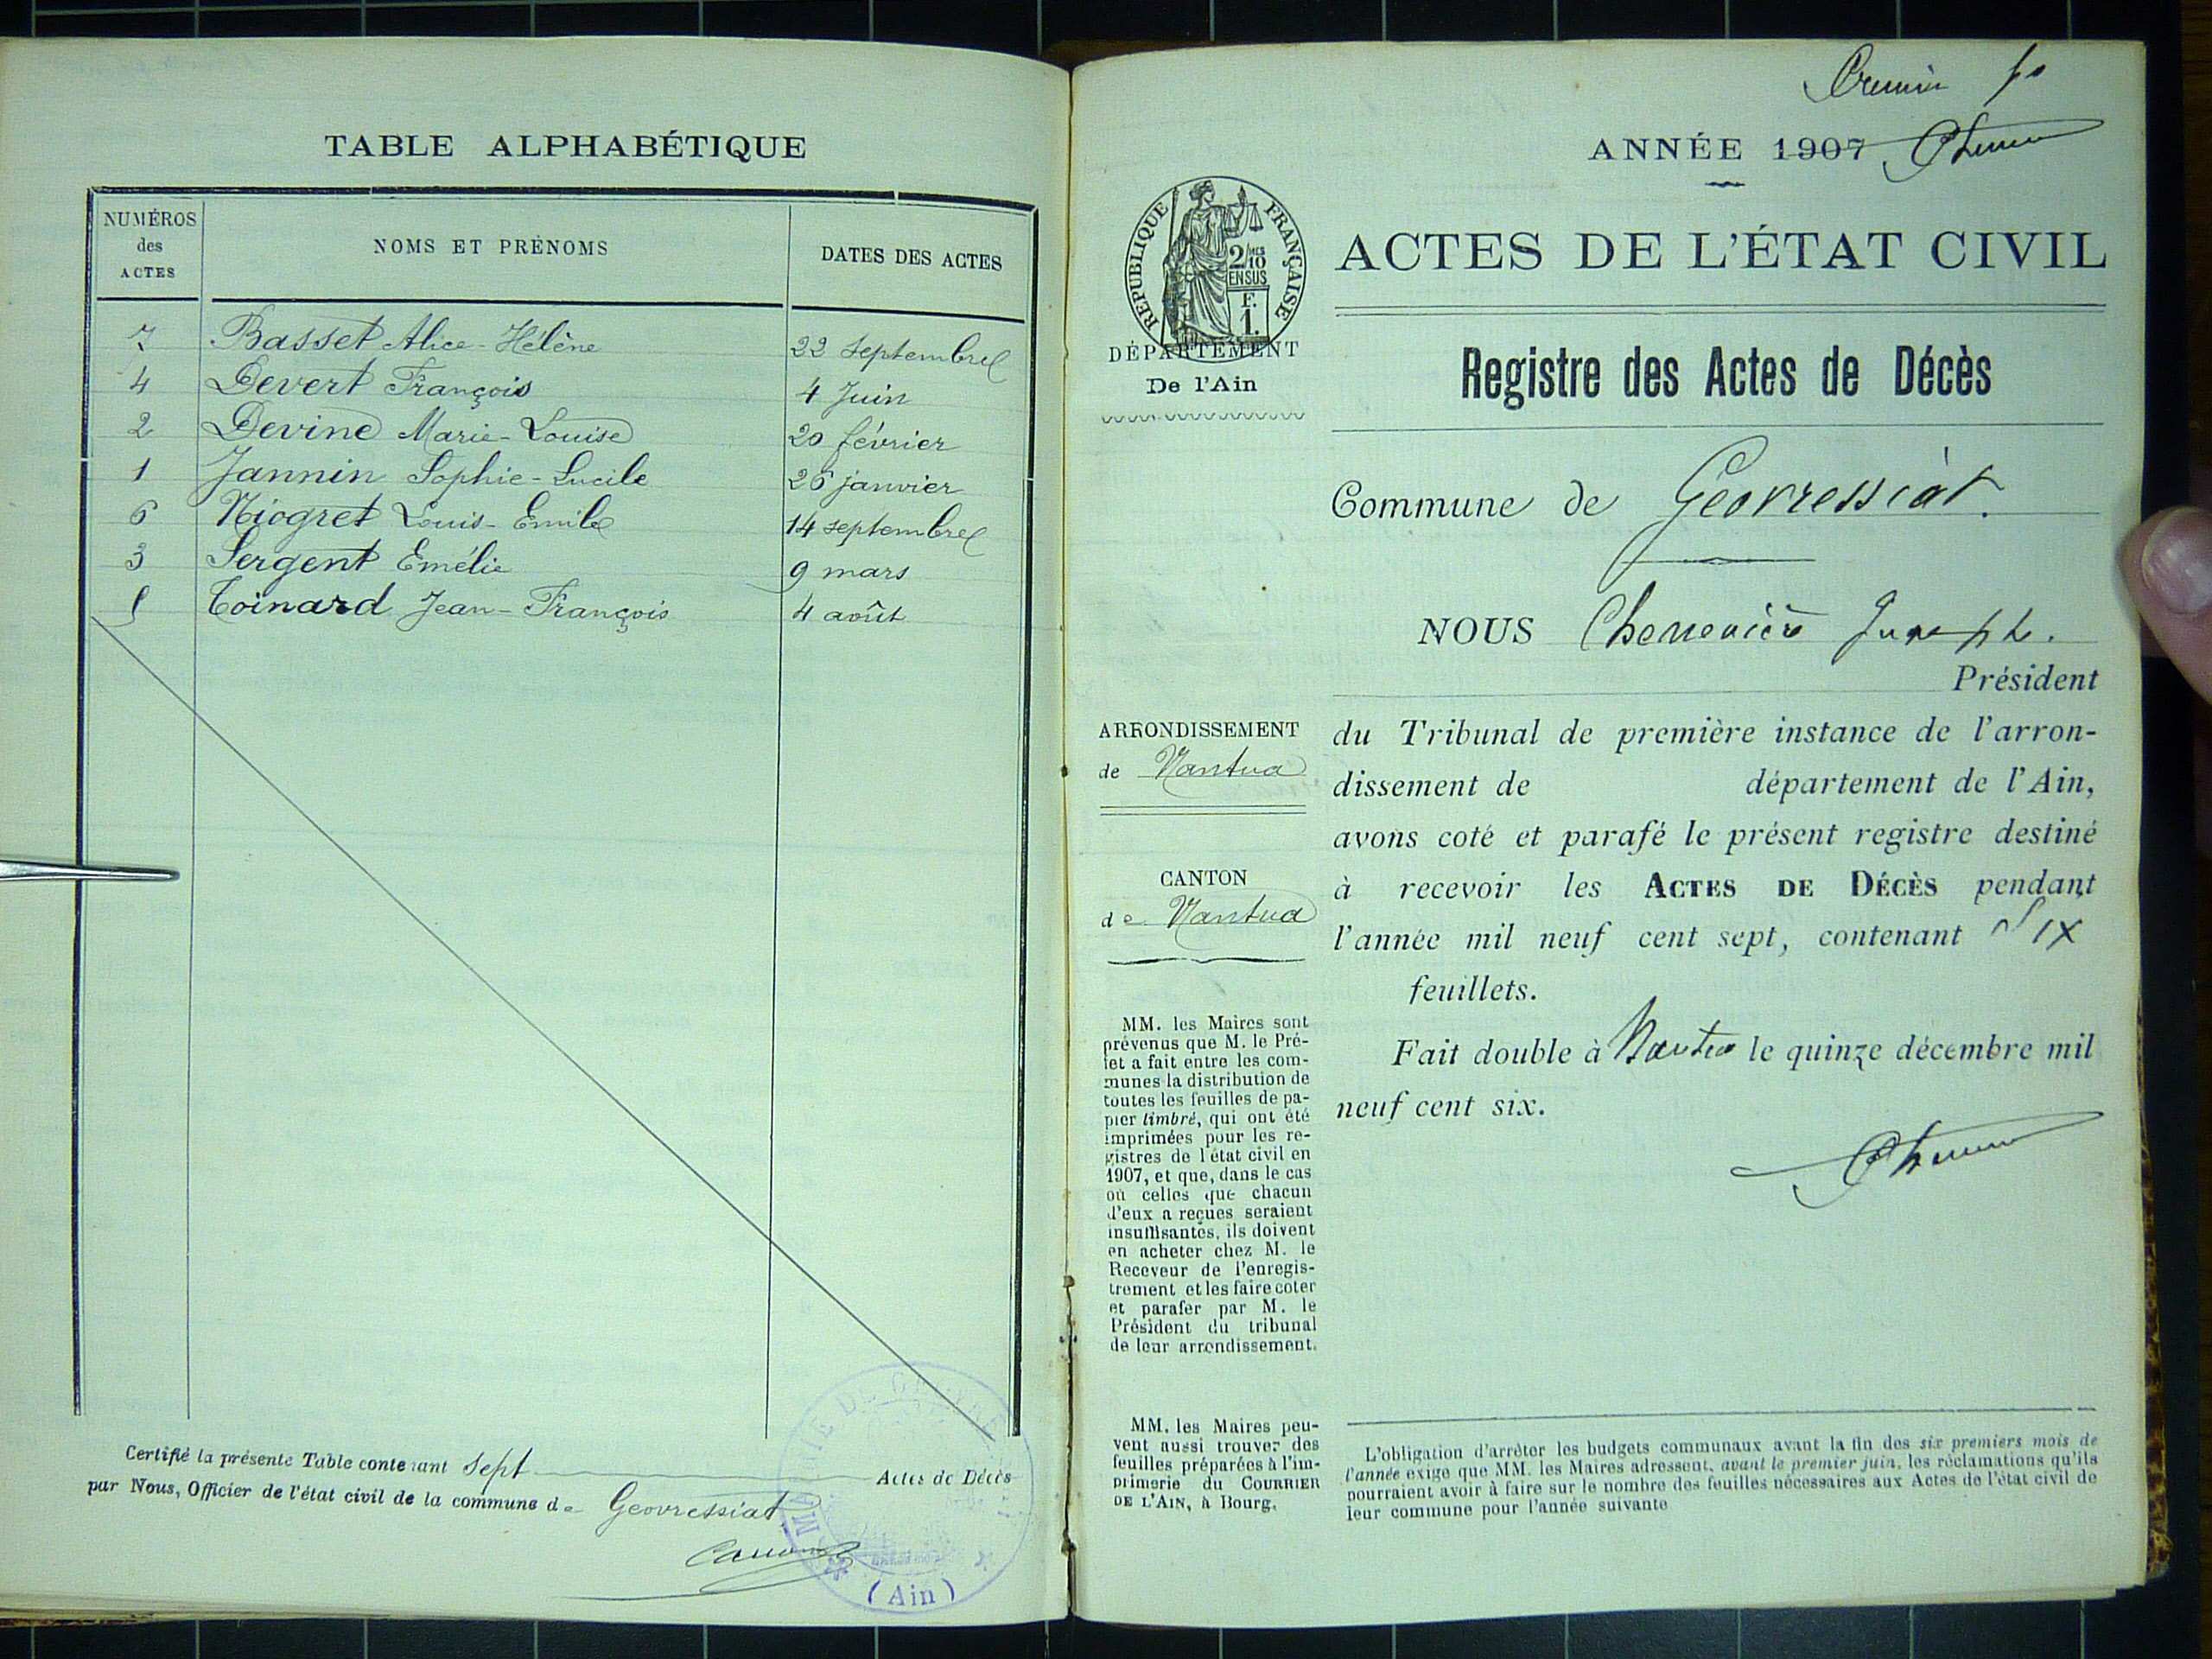 TABLE ALPHABÉTIQUE
NUMÉROS
des
ACTES
NOMS ET PRÉNOMS
DATES DES ACTES
7 Basset Alice-Hélène 22 Septembre
4 Devert François 4 Juin
2 Devine Marie-Louise 20 février
1 Jannin Sophie-Lucile 26 janvier
6 Niogret Louis-Emile 14 septembre
3 Sergent Emélie 9 mars
5 Toinard Jean-François 4 août
Certifié la présente Table contenant sept Actes de Décès
par Nous, Officier de l'état civil de la commune de Geovressiat
MAIRIE DE
(Ain)
Premier fo
ANNÉE 1907
RÉPUBLIQUE FRANÇAISE
2/10
EN SUS
F.
1.
DÉPARTEMENT
De l'Ain
ACTES DE L'ÉTAT CIVIL
Registre des Actes de Décès
Commune de Géovressiat.
NOUS Chenevière Joseph.
Président
du Tribunal de première instance de l'arron-
dissement de département de l'Ain,
avons coté et parafé le présent registre destiné
à recevoir les ACTES DE DÉCÈS pendant
l'année mil neuf cent sept, contenant Six
feuillets.
Fait double à Nantua le quinze décembre mil
neuf cent six.
ARRONDISSEMENT
de Nantua
CANTON
de Nantua
MM. les Maires sont
prévenus que M. le Pré-
fet a fait entre les com-
munes la distribution de
toutes les feuilles de pa-
pier timbré, qui ont été
imprimées pour les re-
gistres de l'état civil en
1907, et que, dans le cas
où celles que chacun
d'eux a reçues seraient
insuffisantes, ils doivent
en acheter chez M. le
Receveur de l'enregis-
trement et les faire coter
et parafer par M. le
Président du tribunal
de leur arrondissement.
MM. les Maires peu-
vent aussi trouver des
feuilles préparées à l'im-
primerie du COURRIER
DE L'AIN, à Bourg.
L'obligation d'arrêter les budgets communaux avant la fin des six premiers mois de
l'année exige que MM. les Maires adressent, avant le premier juin, les réclamations qu'ils
pourraient avoir à faire sur le nombre des feuilles nécessaires aux Actes de l'état civil de
leur commune pour l'année suivante